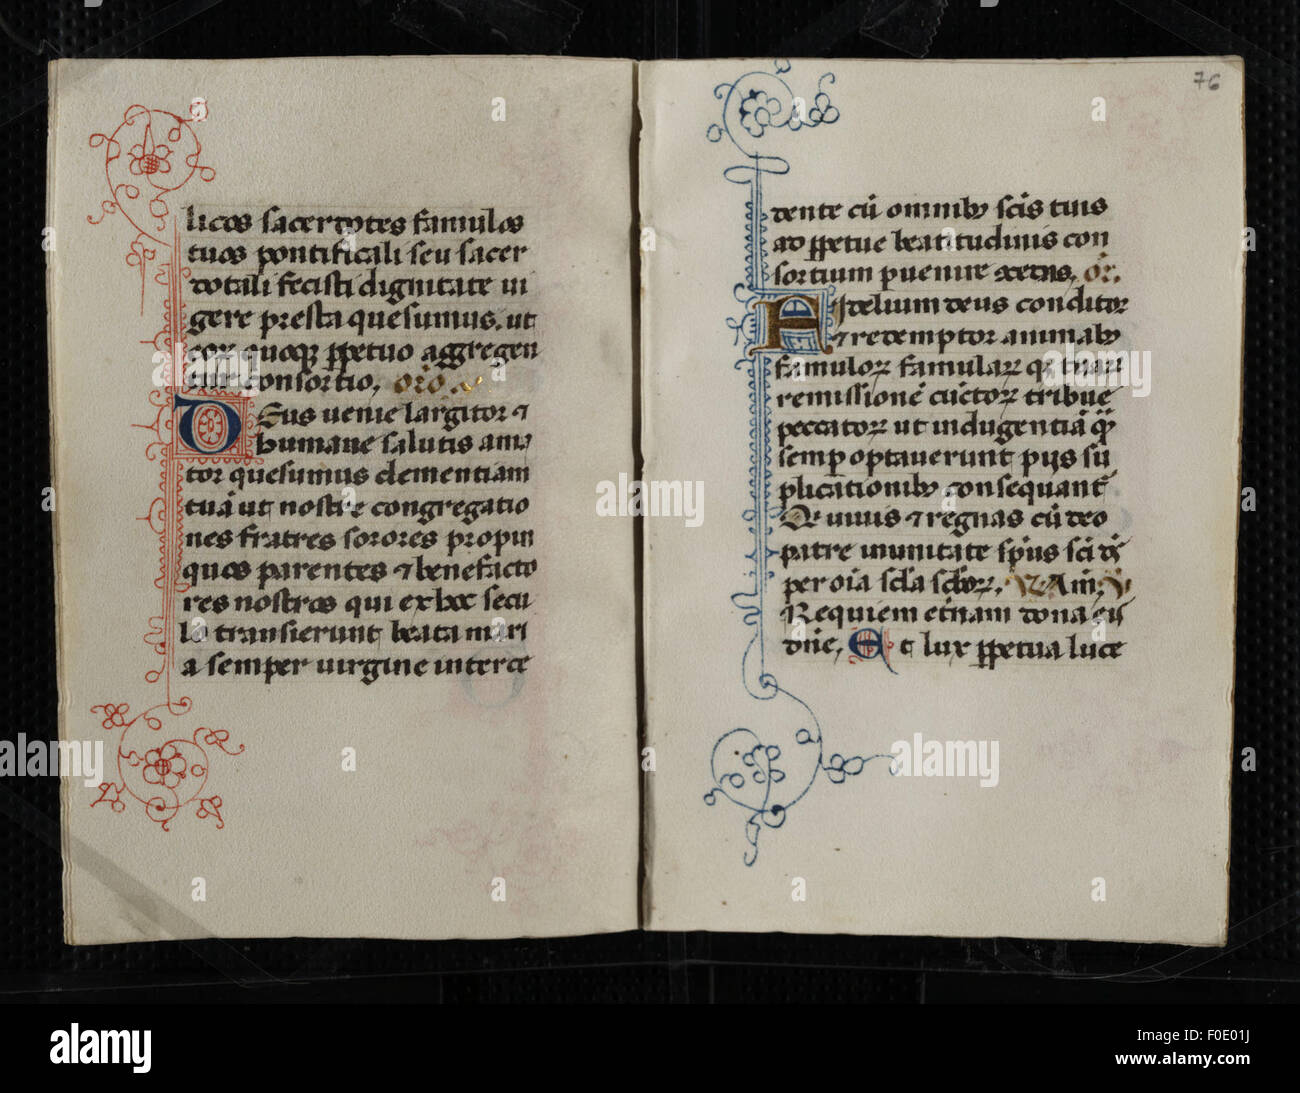 licos sacerdotes famulos
tuos pontificali seu sacer
dotali fecisti dignitate vi
gere presta quesumus. ut
eor quoqz ꝑpetuo aggregen
tur consortio. oro.
Deus venie largitor ⁊
humane salutis ama
tor quesumus clementiam
tuā ut nostre congregatio
nes fratres sorores propin
quos parentes ⁊ benefacto
res nostros qui ex hoc secu
lo transierunt beata mari
a semper virgine interce
76
dente cū omnibꝫ scīs tuis
ad ꝑpetue beatitudinis con
sortium ꝑuenire
Fidelium deus conditor
⁊ redemptor animabꝫ
famuloꝝ famulaꝝ qꝫ tuaꝝ
remissionē cūctoꝝ tribue
peccatoꝝ ut indugentiā qꝫ
semꝑ optaverunt pijs su
plicationibꝫ consequant̄
Qr vivis ⁊ regnas cū deo
patre in unitate sp̄us sc̄i dē
per oīa sc̄la sc̄loꝝ. Am̄.
Requiem et̄nam dona eis
dn̄e. Et lux ꝑpetua luce
alamy
Image ID: F0E01J
www.alamy.com